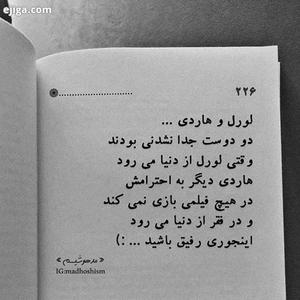 ejiga.com
۲۲۶
لورل و هاردی ...
دو دوست جدا نشدنی بودند
وقتی لورل از دنیا می رود
هاردی دیگر به احترامش
در هیچ فیلمی بازی نمی کند
و در فقر از دنیا می رود
اینجوری رفیق باشید ... :)
« مدهوشیسم »
IG:madhoshism